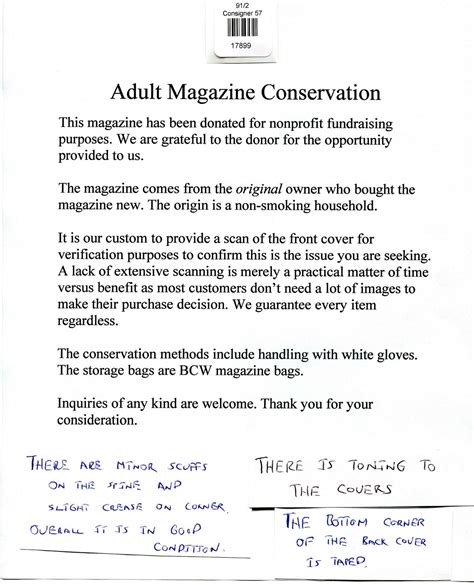 91/2
Consigner 57
17899
Adult Magazine Conservation
This magazine has been donated for nonprofit fundraising
purposes. We are grateful to the donor for the opportunity
provided to us.
The magazine comes from the original owner who bought the
magazine new. The origin is a non-smoking household.
It is our custom to provide a scan of the front cover for
verification purposes to confirm this is the issue you are seeking.
A lack of extensive scanning is merely a practical matter of time
versus benefit as most customers don't need a lot of images to
make their purchase decision. We guarantee every item
regardless.
The conservation methods include handling with white gloves.
The storage bags are BCW magazine bags.
Inquiries of any kind are welcome. Thank you for your
consideration.
THERE ARE MINOR SCUFFS
ON THE SPINE AND
SLIGHT CREASE ON CORNER.
OVERALL IT IS IN GOOD
CONDITION.
THERE IS TONING TO
THE COVERS
THE BOTTOM CORNER
OF THE BACK COVER
IS TAPED.